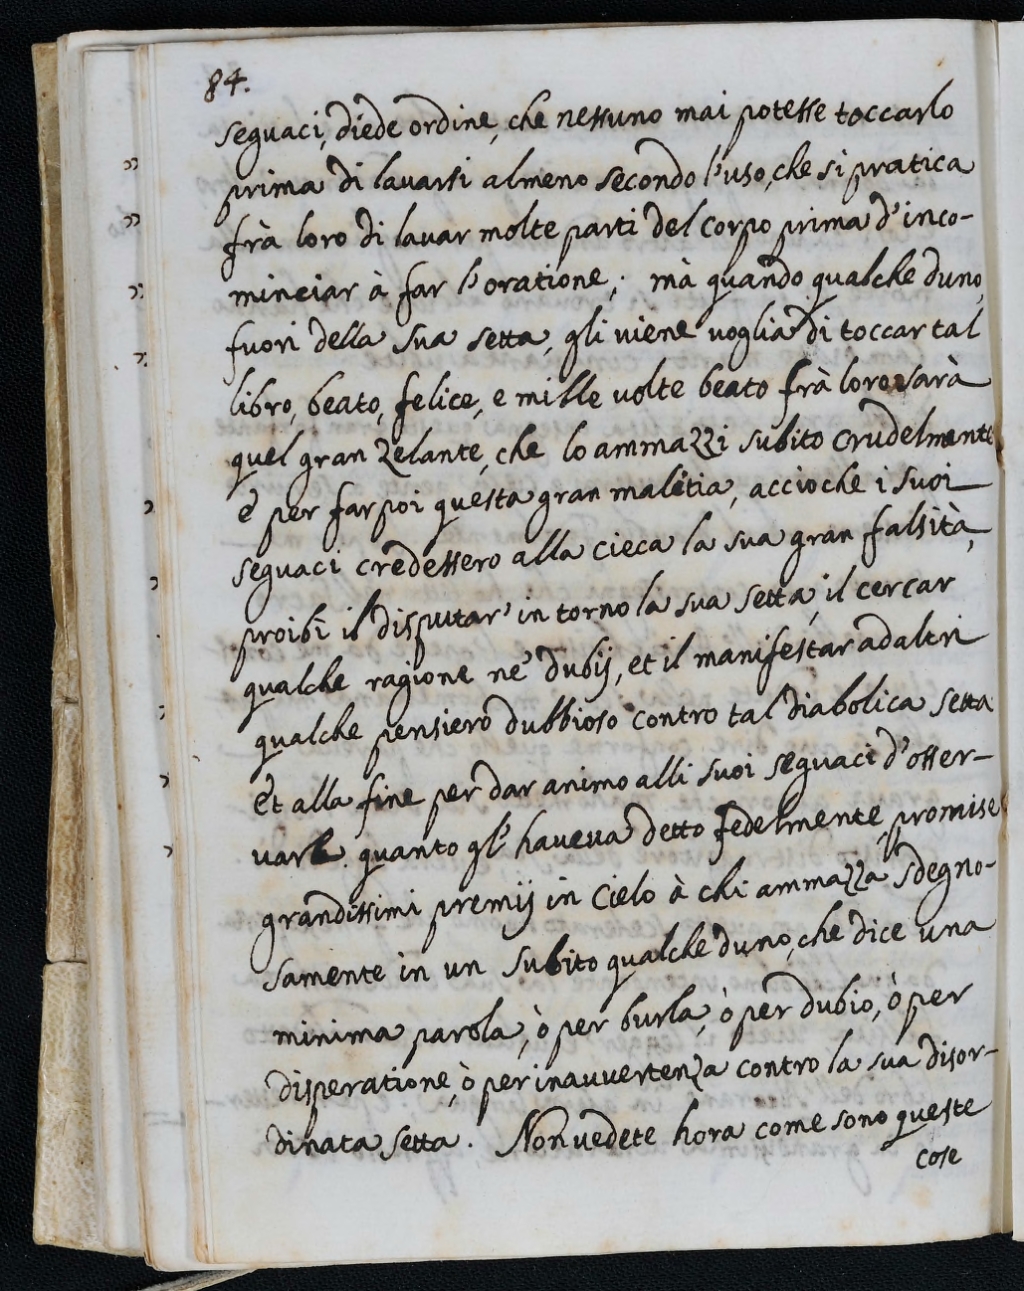 84.
seguaci, diede ordine, che nessuno mai potesse toccarlo
prima di lauarsi almeno secondo l'uso, che si pratica
frà loro di lauar molte parti del corpo prima d'inco-
minciar à far l'oratione; mà quando qualche duno,
fuori della sua setta, gli uiene uoglia di toccar tal
libro, beato, felice, e mille uolte beato frà loro sarà
quel gran zelante, che lo ammazzi subito crudelmente
è per far poi questa gran malitia, accioche i suoi
seguaci credessero alla cieca la sua gran falsità,
proibì il disputar' in torno la sua setta, il cercar
qualche ragione ne' dubij, et il manifestar ad altri
qualche pensiero dubbioso contro tal diabolica setta
Et alla fine per dar animo alli suoi seguaci d'osser-
uare quanto gl' haueua detto fedelmente, promise
grandissimi premij in Cielo à chi ammazza sdegno-
samente in un subito qualche duno, che dice una
minima parola, ò per burla, ò per dubio, ò per
disperatione, ò per inauuertenza contro la sua disor-
dinata setta. Non uedete hora come sono queste
cose